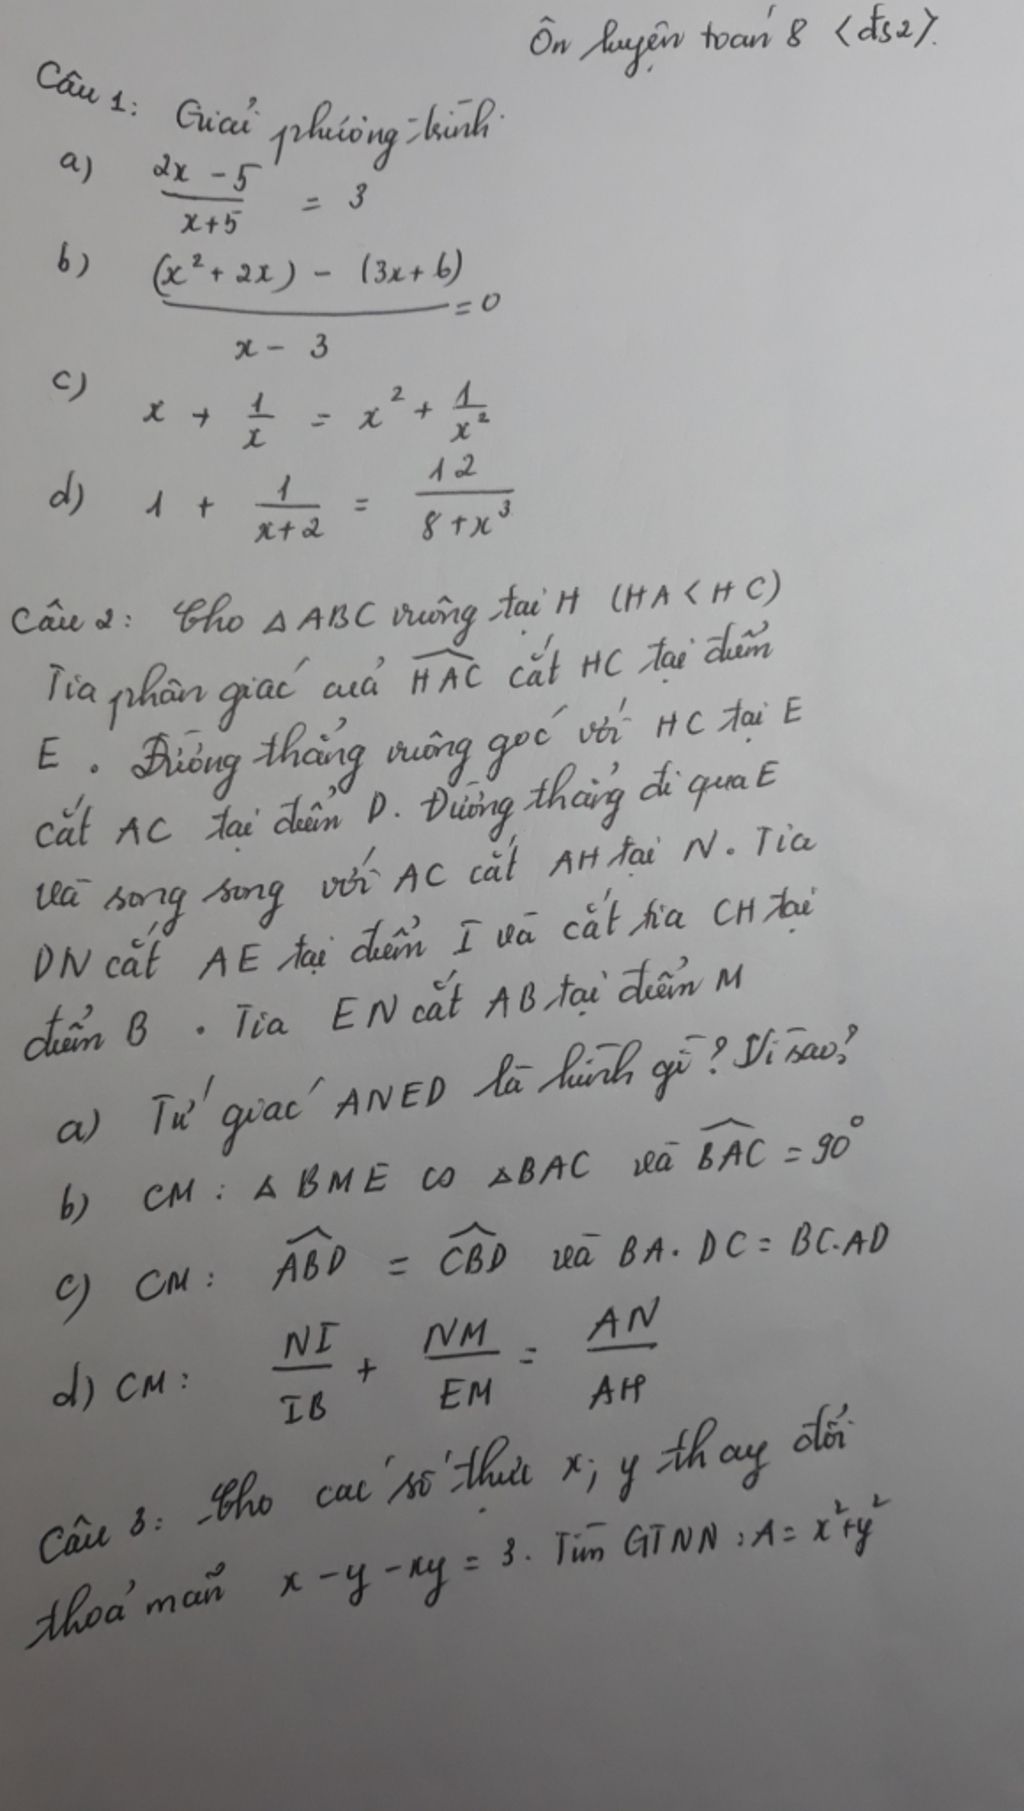 Ôn luyện toán 8 <đs2>.
Câu 1: Giải phương trình
a) (2x - 5)/(x+5) = 3
b) ((x² + 2x) - (3x + 6))/(x - 3) = 0
c) x + 1/x = x² + 1/x²
d) 1 + 1/(x+2) = 12/(8 + x³)
Câu 2: Cho △ABC vuông tại H (HA < HC)
Tia phân giác của \widehat{HAC} cắt HC tại điểm
E. Đường thẳng vuông góc với HC tại E
cắt AC tại điểm D. Đường thẳng đi qua E
và song song với AC cắt AH tại N. Tia
DN cắt AE tại điểm I và cắt tia CH tại
điểm B. Tia EN cắt AB tại điểm M
a) Tứ giác ANED là hình gì? Vì sao?
b) CM: △BME ∽ △BAC và \widehat{BAC} = 90°
c) CM: \widehat{ABD} = \widehat{CBD} và BA. DC = BC.AD
d) CM: NI/IB + NM/EM = AN/AH
Câu 3: Cho các số thực x; y thay đổi
thoả mãn x - y - xy = 3. Tìm GTNN: A = x²+y²